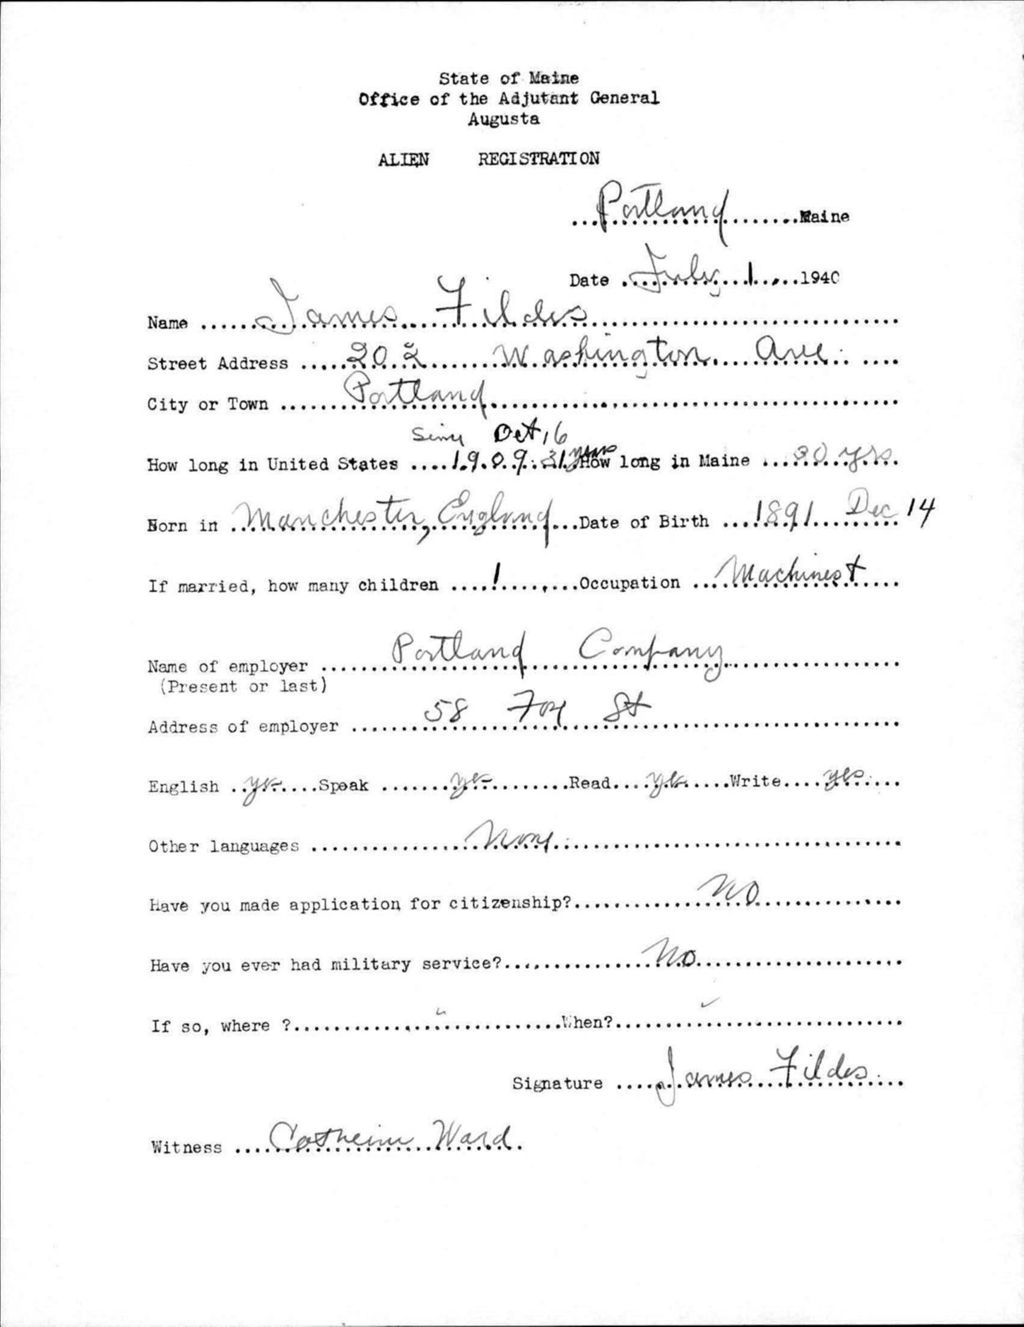 State of Maine
Office of the Adjutant General
Augusta
ALIEN REGISTRATION
Portland Maine
Date July 1 1940
Name James Fildes
Street Address 202 Washington Ave.
City or Town Portland
Since Oct 16
How long in United States 1909. 31 years How long in Maine 30 yrs.
Born in Manchester, England Date of Birth 1891 Dec 14
If married, how many children 1 Occupation Machinest
Name of employer Portland Company
(Present or last)
Address of employer 58 Fox St
English yes Speak yes Read yes Write yes
Other languages None
Have you made application for citizenship? NO
Have you ever had military service? No
If so, where ? When?
Signature James Fildes
Witness Catherine Ward.